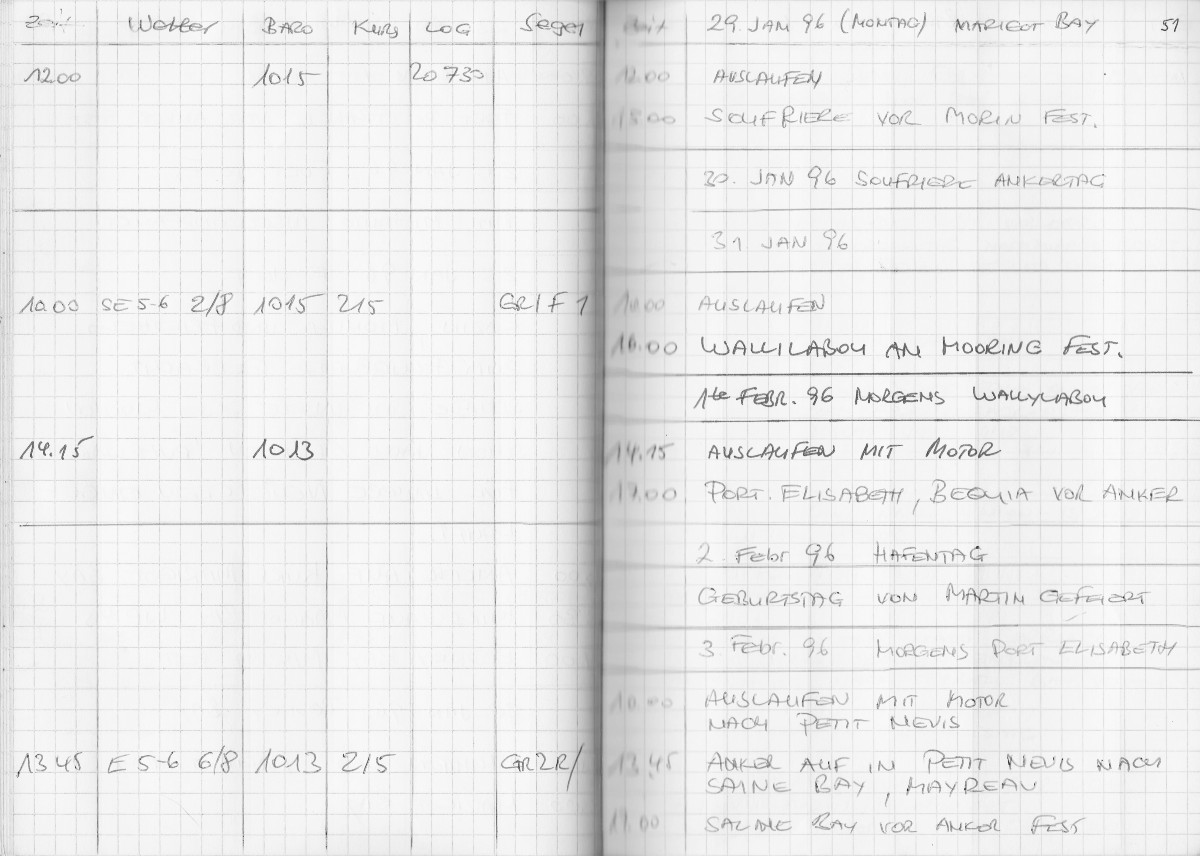 Zeit Wetter BARO Kurs LOG Segel
12.00 1015 20730
10.00 SE 5-6 2/8 1015 215 GR/F1
14.15 1013
13.45 E 5-6 6/8 1013 215 GR2R/
29. JAN 96 (MONTAG) MARIGOT BAY 51
12.00 AUSLAUFEN
15.00 SOUFRIERE VOR MORIN FEST.
30. JAN 96 SOUFRIERE ANKERTAG
31 JAN 96
10.00 AUSLAUFEN
16.00 WALLILABOU AN MOORING FEST.
1te FEBR. 96 MORGENS WALLYLABOU
14.15 AUSLAUFEN MIT MOTOR
17.00 PORT. ELISABETH, BEQUIA VOR ANKER
2. Febr 96 HAFENTAG
GEBURTSTAG VON MARTIN GEFEIERT
3. Febr. 96 MORGENS PORT ELISABETH
10.00 AUSLAUFEN MIT MOTOR
NACH PETIT NEVIS
13.45 ANKER AUF IN PETIT NEVIS NACH
SALINE BAY, MAYREAU
17.00 SALINE BAY VOR ANKER FEST